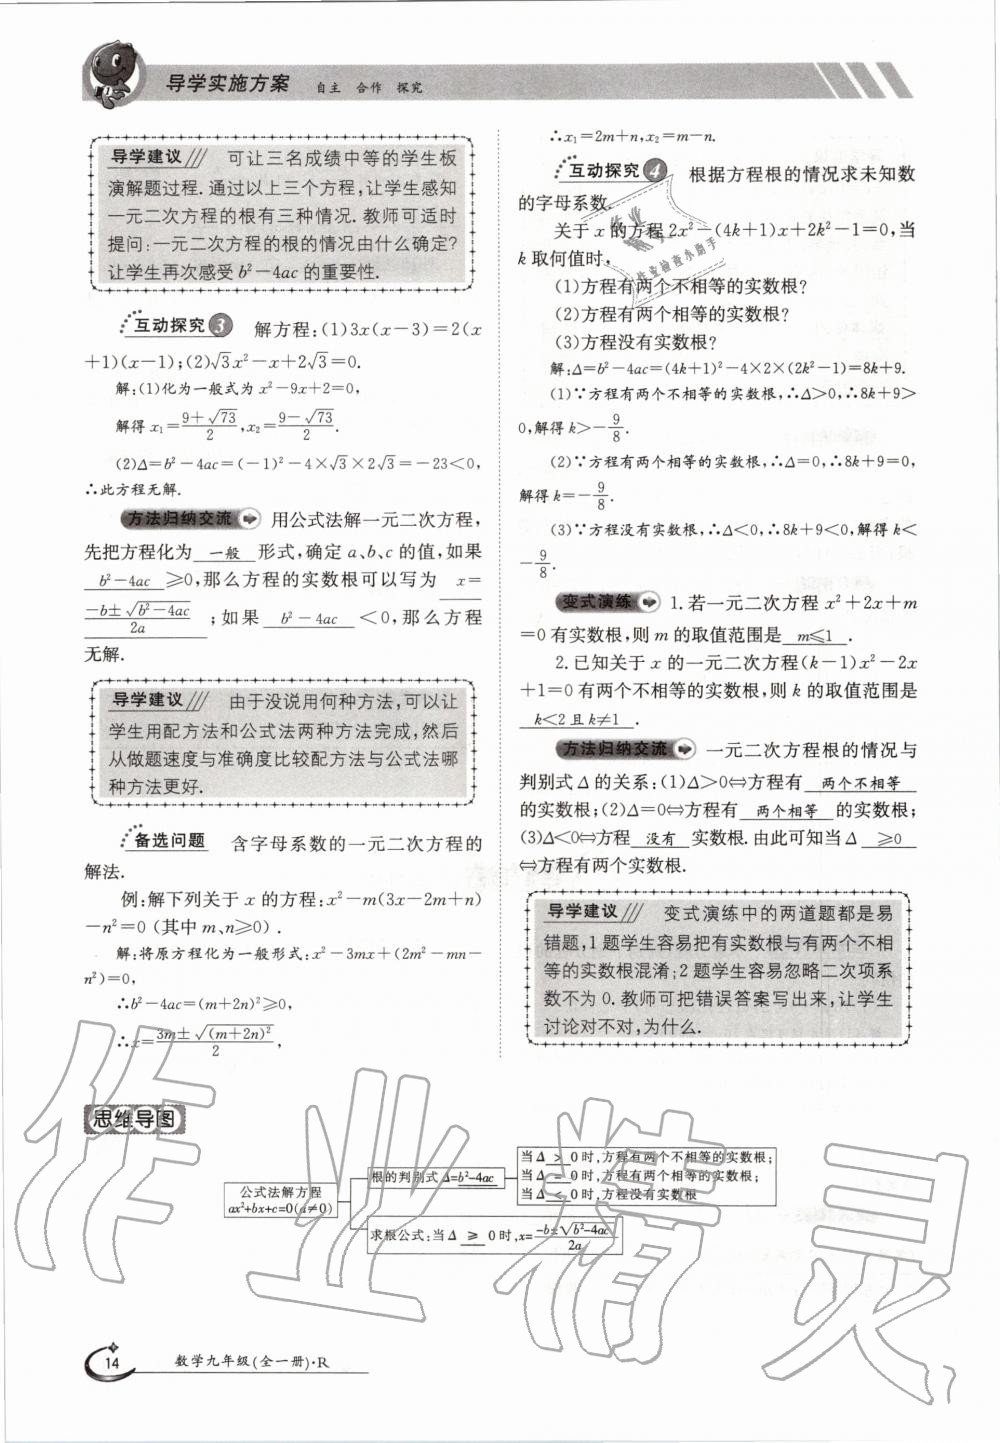 导学实施方案 自主 合作 探究
导学建议 可让三名成绩中等的学生板
演解题过程.通过以上三个方程,让学生感知
一元二次方程的根有三种情况.教师可适时
提问:一元二次方程的根的情况由什么确定?
让学生再次感受 b²－4ac 的重要性.
互动探究3 解方程:(1)3x(x－3)=2(x
+1)(x－1);(2)√3x²－x+2√3=0.
解:(1)化为一般式为 x²－9x+2=0,
解得 x₁=(9+√73)/2,x₂=(9－√73)/2.
(2)Δ=b²－4ac=(－1)²－4×√3×2√3=－23<0,
∴此方程无解.
方法归纳交流 用公式法解一元二次方程,
先把方程化为 一般 形式,确定 a、b、c 的值,如果
b²－4ac ≥0,那么方程的实数根可以写为 x=
(－b±√(b²－4ac))/2a ;如果 b²－4ac <0,那么方程
无解.
导学建议 由于没说用何种方法,可以让
学生用配方法和公式法两种方法完成,然后
从做题速度与准确度比较配方法与公式法哪
种方法更好.
备选问题 含字母系数的一元二次方程的
解法.
例:解下列关于 x 的方程:x²－m(3x－2m+n)
－n²=0 (其中 m、n≥0).
解:将原方程化为一般形式:x²－3mx+(2m²－mn－
n²)=0,
∴b²－4ac=(m+2n)²≥0,
∴x=(3m±√((m+2n)²))/2,
∴x₁=2m+n,x₂=m－n.
互动探究4 根据方程根的情况求未知数
的字母系数.
关于 x 的方程 2x²－(4k+1)x+2k²－1=0,当
k 取何值时,
(1)方程有两个不相等的实数根?
(2)方程有两个相等的实数根?
(3)方程没有实数根?
解:Δ=b²－4ac=(4k+1)²－4×2×(2k²－1)=8k+9.
(1)∵方程有两个不相等的实数根,∴Δ>0,∴8k+9>
0,解得 k>－9/8.
(2)∵方程有两个相等的实数根,∴Δ=0,∴8k+9=0,
解得 k=－9/8.
(3)∵方程没有实数根,∴Δ<0,∴8k+9<0,解得 k<
－9/8.
变式演练 1.若一元二次方程 x²+2x+m
=0 有实数根,则 m 的取值范围是 m≤1 .
2.已知关于 x 的一元二次方程(k－1)x²－2x
+1=0 有两个不相等的实数根,则 k 的取值范围是
k<2 且 k≠1 .
方法归纳交流 一元二次方程根的情况与
判别式 Δ 的关系:(1)Δ>0⇔方程有 两个不相等
的实数根;(2)Δ=0⇔方程有 两个相等 的实数根;
(3)Δ<0⇔方程 没有 实数根.由此可知当 Δ ≥0
⇔方程有两个实数根.
导学建议 变式演练中的两道题都是易
错题,1题学生容易把有实数根与有两个不相
等的实数根混淆;2题学生容易忽略二次项系
数不为 0.教师可把错误答案写出来,让学生
讨论对不对,为什么.
思维导图
公式法解方程
ax²+bx+c=0(a≠0)
根的判别式 Δ=b²-4ac
当 Δ > 0时,方程有两个不相等的实数根;
当 Δ = 0时,方程有两个相等的实数根;
当 Δ < 0时,方程没有实数根
求根公式:当 Δ ≥ 0时,x=(-b±√(b²-4ac))/2a
14 数学九年级(全一册)·R
作业检查小助手
作业精灵